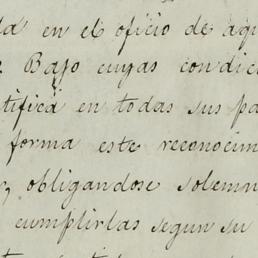 da en el oficio de aqu
Bajo cuyas condic
tifica en todas sus pa
forma este reconocim
obligandose solemn
cumplirlas segun su